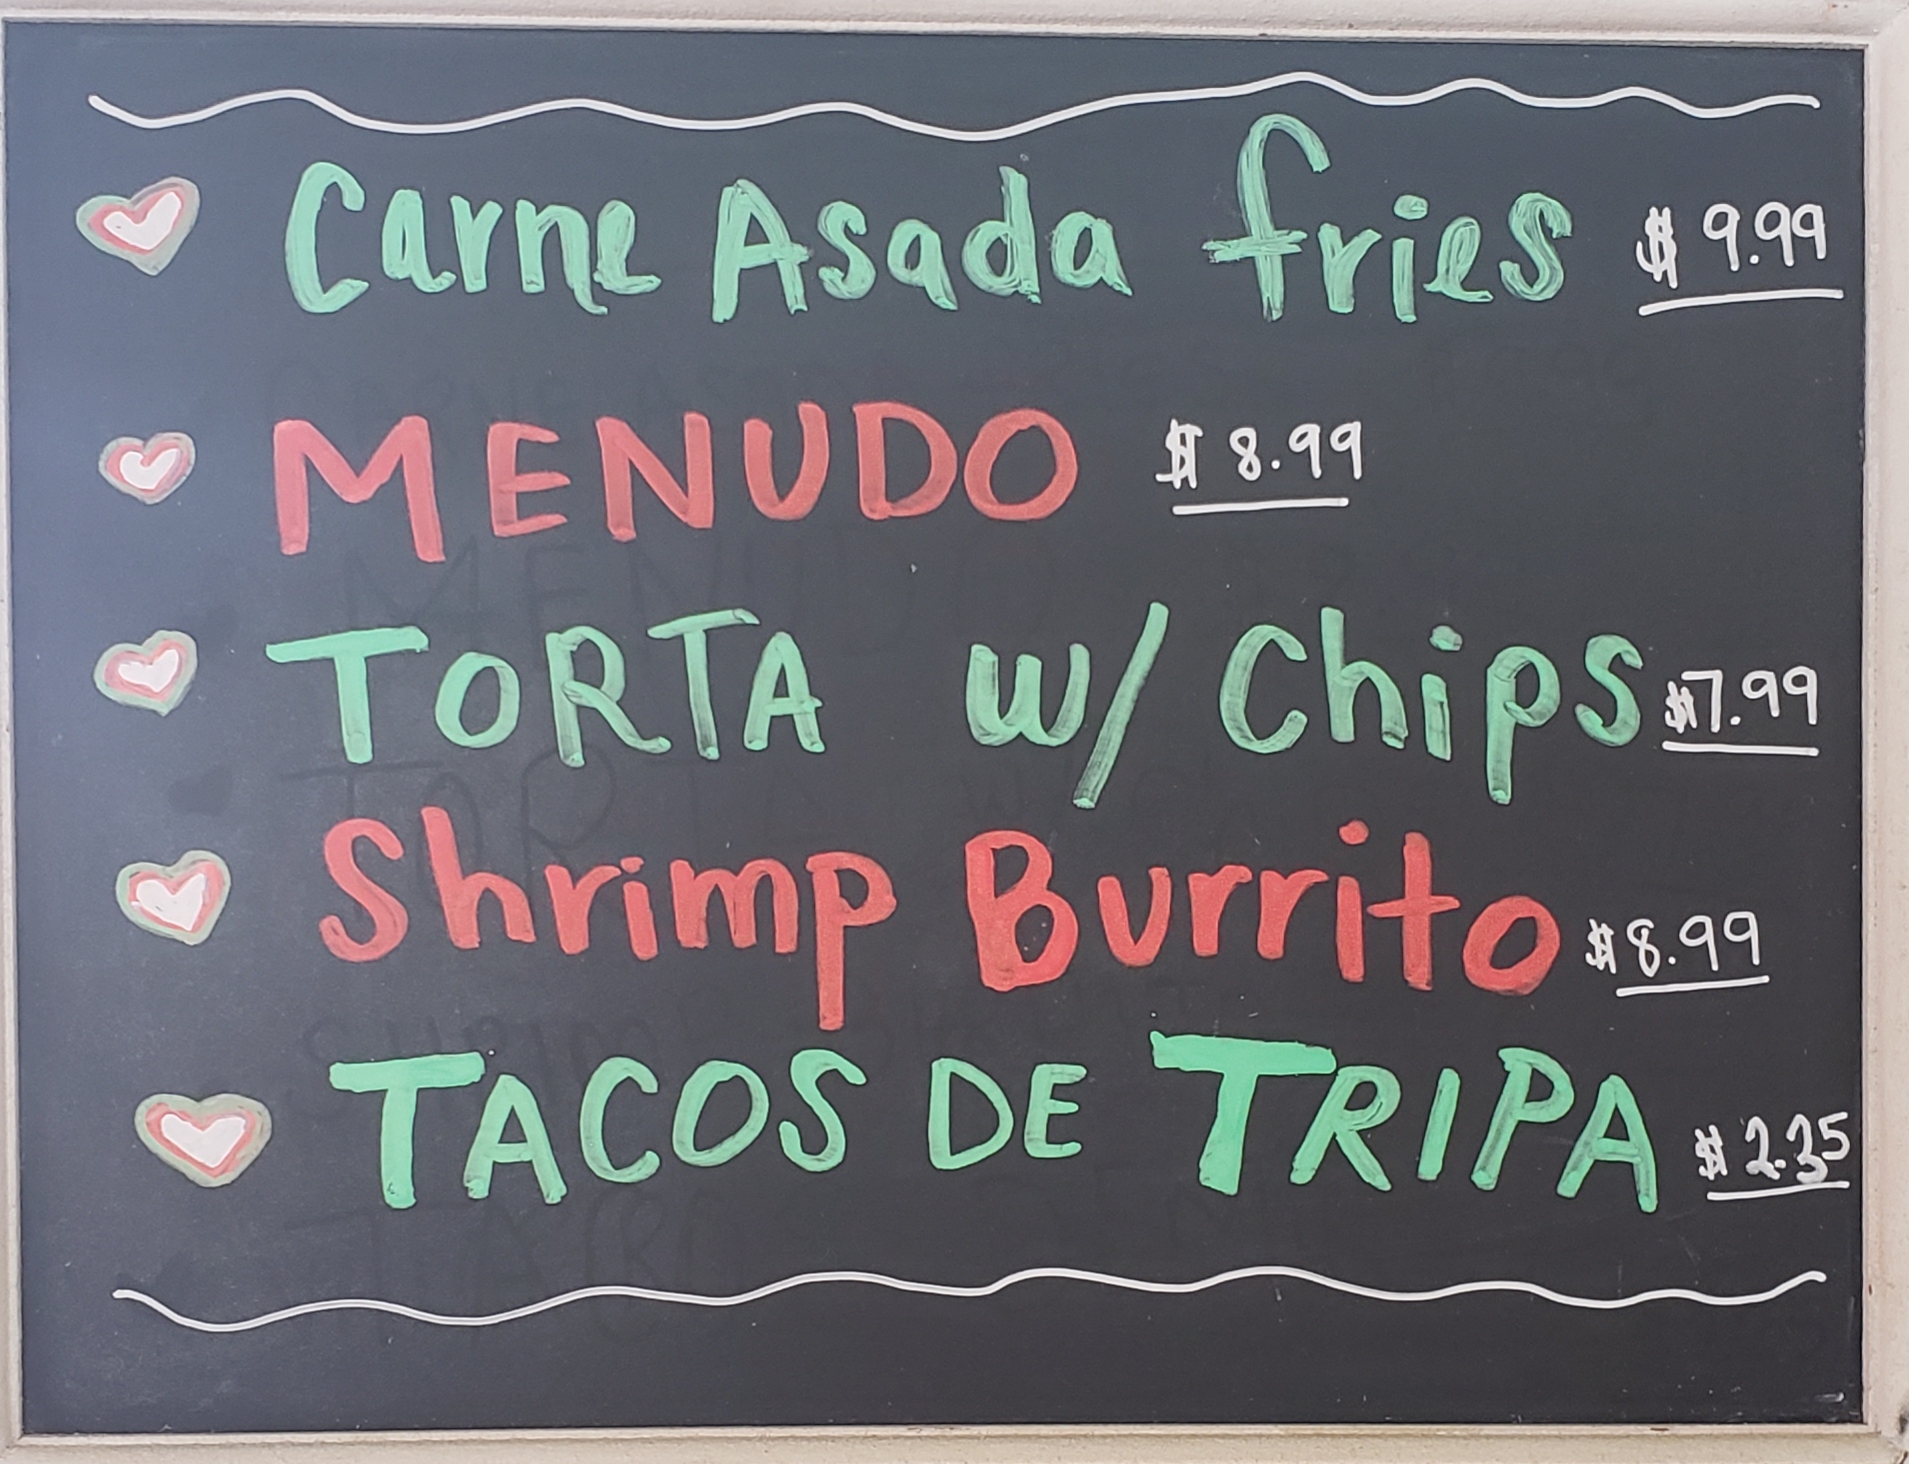 Carne Asada fries $9.99
MENUDO $8.99
TORTA w/ Chips $7.99
Shrimp Burrito $8.99
TACOS DE TRIPA $2.35